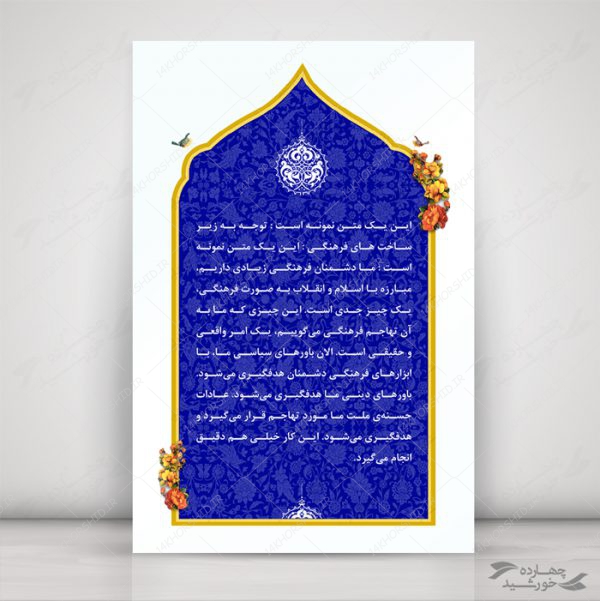 این یک متن نمونه است : توجه به زیر
ساخت های فرهنگی : این یک متن نمونه
است : ما دشمنان فرهنگی زیادی داریم،
مبارزه با اسلام و انقلاب به صورت فرهنگی،
یک چیز جدی است. این چیزی که ما به
آن تهاجم فرهنگی می‌گوییم، یک امر واقعی
و حقیقی است. الان باورهای سیاسی ما، با
ابزارهای فرهنگی دشمنان هدفگیری می‌شود.
باورهای دینی ما هدفگیری می‌شود، عادات
حسنه‌ی ملت ما مورد تهاجم قرار می‌گیرد و
هدفگیری می‌شود. این کار خیلی هم دقیق
انجام می‌گیرد.
چهارده
خورشید